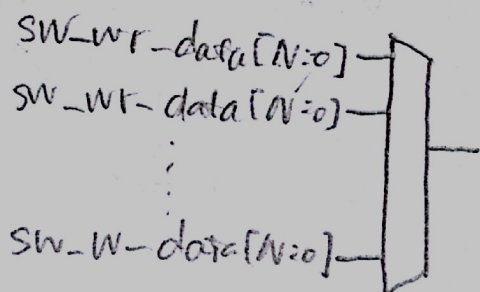 SW_Wr_data[N:0]
SW_Wr_data[N:0]
SW_W_data[N:0]